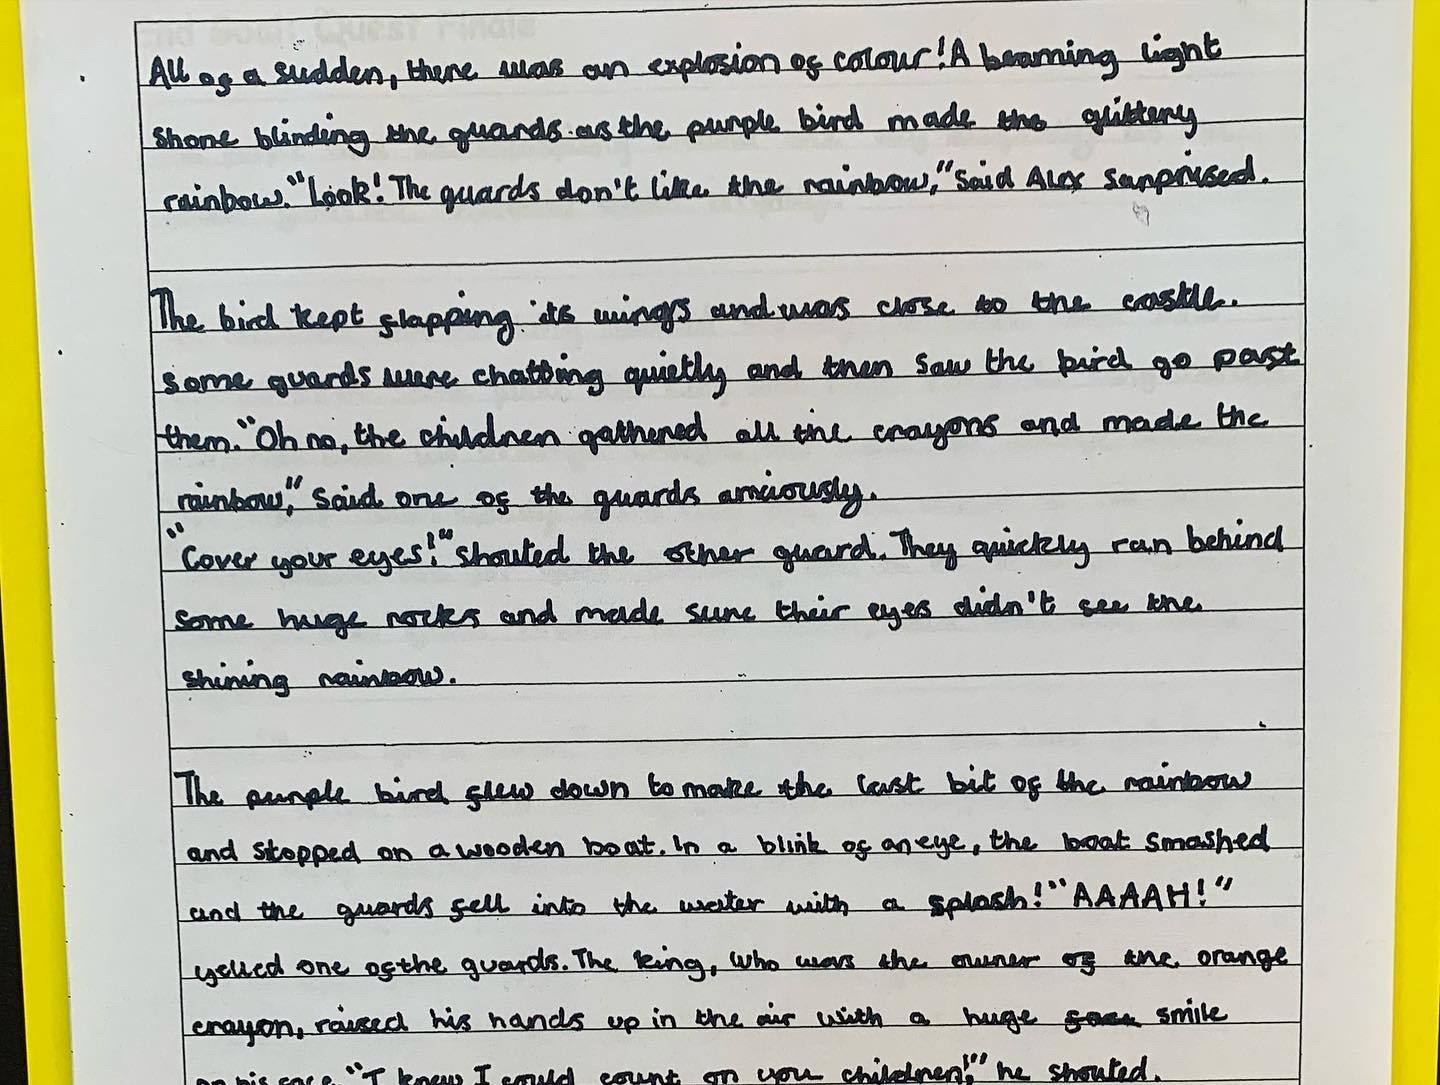 All of a sudden, there was an explosion of colour! A beaming light
shone blinding the guards as the purple bird made the glittery
rainbow. "Look! The guards don't like the rainbow," said Alex surprised.
The bird kept flapping its wings and was close to the castle.
some guards were chatting quietly and then saw the bird go past
them. "Oh no, the children gathered all the crayons and made the
rainbow," said one of the guards anxiously.
"Cover your eyes!" shouted the other guard. They quickly ran behind
some huge rocks and made sure their eyes didn't see the
shining rainbow.
The purple bird flew down to make the last bit of the rainbow
and stopped on a wooden boat. In a blink of an eye, the boat smashed
and the guards fell into the water with a splash! "AAAAH!"
yelled one of the guards. The king, who was the owner of the orange
crayon, raised his hands up in the air with a huge smile
on his face. "I knew I could count on you children!" he shouted.